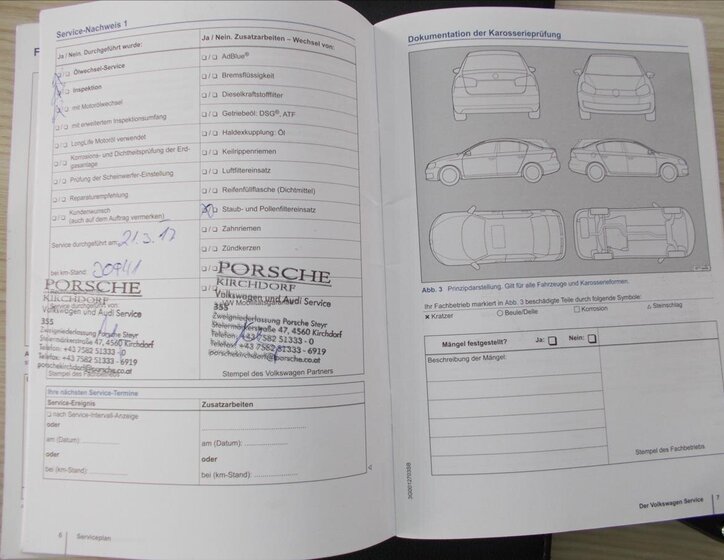 Service-Nachweis 1
Ja / Nein. Durchgeführt wurde:
Ja / Nein. Zusatzarbeiten – Wechsel von:
Ölwechsel-Service
Inspektion
mit Motorölwechsel
mit erweitertem Inspektionsumfang
LongLife Motoröl verwendet
Korrosions- und Dichtheitsprüfung der Erd-
gasanlage
Prüfung der Scheinwerfer-Einstellung
Reparaturempfehlung
Kundenwunsch
(auch auf dem Auftrag vermerken)
AdBlue®
Bremsflüssigkeit
Dieselkraftstofffilter
Getriebeöl: DSG®, ATF
Haldexkupplung: Öl
Keilrippenriemen
Luftfiltereinsatz
Reifenfüllflasche (Dichtmittel)
Staub- und Pollenfiltereinsatz
Zahnriemen
Zündkerzen
Service durchgeführt am: 21.3.17
bei km-Stand: 30941
PORSCHE
KIRCHDORF
Volkswagen und Audi Service
355
Zweigniederlassung Porsche Steyr
Steiermärkerstraße 47, 4560 Kirchdorf
Telefon: +43 7582 51333 - 0
Telefax: +43 7582 51333 - 6919
porschekirchdorf@porsche.co.at
Stempel des Fachbetriebs
PORSCHE
KIRCHDORF
Volkswagen und Audi Service
355
Zweigniederlassung Porsche Steyr
Steiermärkerstraße 47, 4560 Kirchdorf
Telefon: +43 7582 51333 - 0
Telefax: +43 7582 51333 - 6919
porschekirchdorf@porsche.co.at
Stempel des Volkswagen Partners
Ihre nächsten Service-Termine
Service-Ereignis
Zusatzarbeiten
nach Service-Intervall-Anzeige
oder
am (Datum):
oder
bei (km-Stand):
am (Datum):
oder
bei (km-Stand):
6 Serviceplan
Dokumentation der Karosserieprüfung
Abb. 3 Prinzipdarstellung. Gilt für alle Fahrzeuge und Karosserieformen.
Ihr Fachbetrieb markiert in Abb. 3 beschädigte Teile durch folgende Symbole:
x Kratzer ○ Beule/Delle □ Korrosion △ Steinschlag
Mängel festgestellt? Ja: Nein:
Beschreibung der Mängel:
Stempel des Fachbetriebs
3G2012703SB
Der Volkswagen Service 7